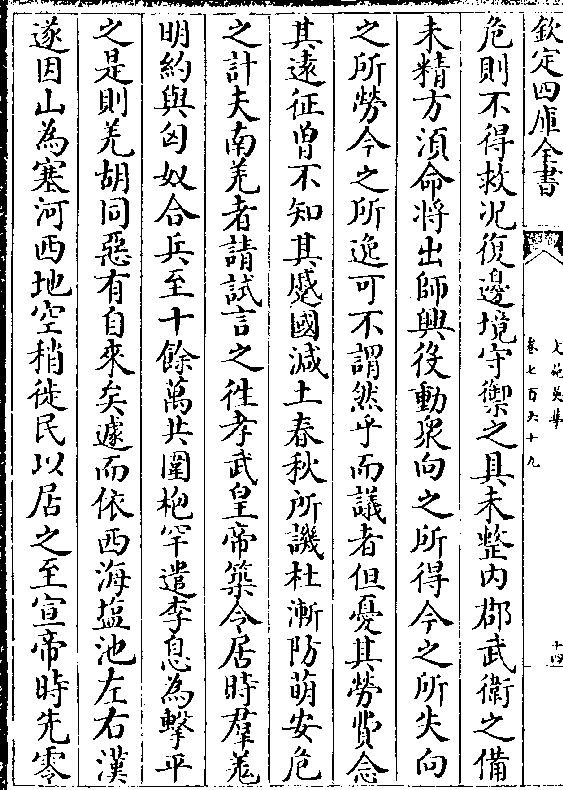 欽定四庫全書
文苑英華
卷七百六十九
十四
危則不得救况復邊境守禦之具未整内郡武衛之備
未精方湏命将出師興役動衆向之所得今之所失向
之所勞今之所逸可不謂然乎而議者但憂其勞費念
其遠征曽不知其蹙國減土春秋所譏杜漸防萌安危
之計夫南羌者請試言之徃孝武皇帝築令居時羣羌
明約與匈奴合兵至十餘萬共圍枹罕遣李息為擊平
之是則羌胡同惡有自來矣遽而依西海塩池左右漢
遂因山為塞河西地空稍徙民以居之至宣帝時先零